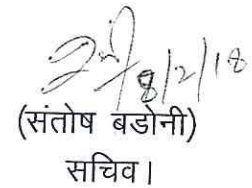 8/2/18
(संतोष बडोनी)
सचिव।